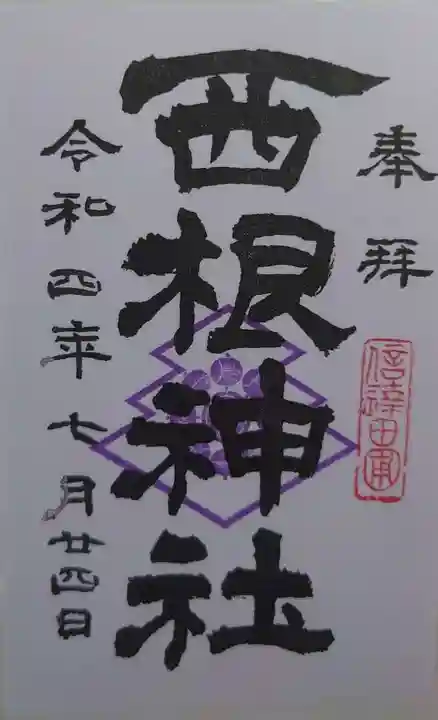 奉拝
西根神社
令和四年七月廿四日